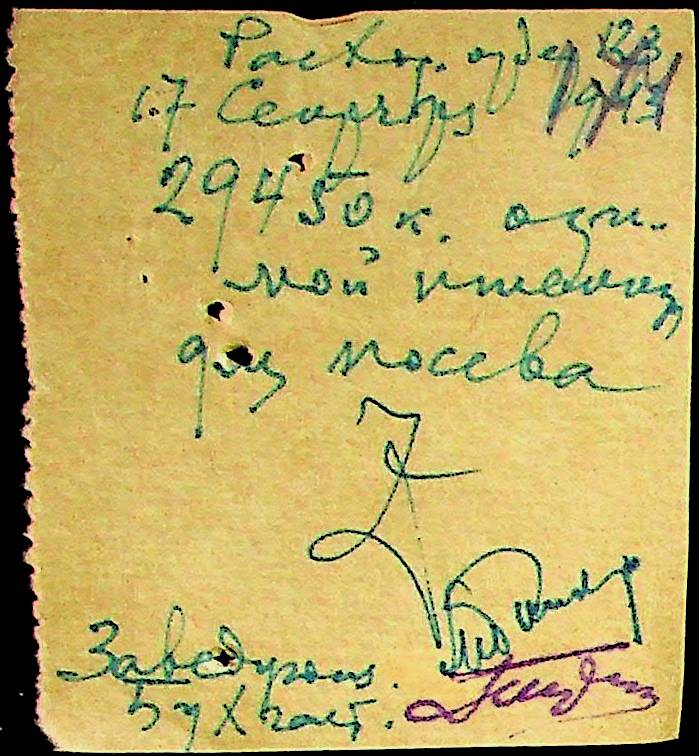 Расход. орде 123
17 Сентября 1943
29450 к. ози-
мой пшеницы
для посева
Заведующ.
Бухгалт.